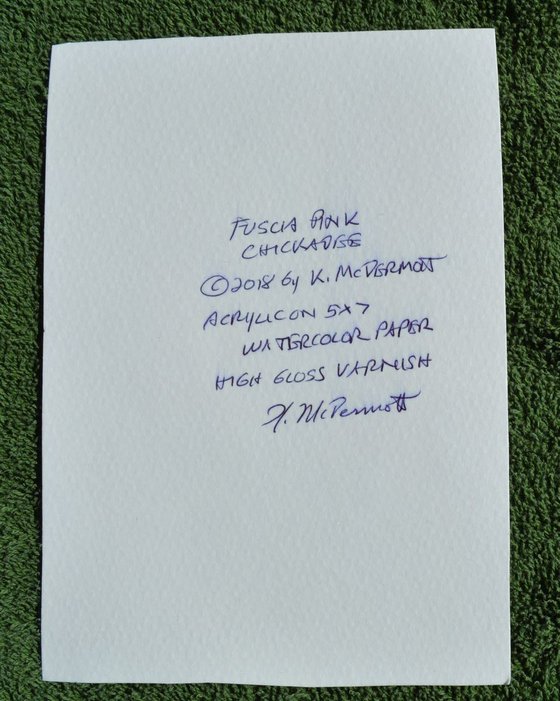 FUSCIA PINK
CHICKADEE
©2018 by K. McDERMOTT
ACRYLIC ON 5x7
WATERCOLOR PAPER
HIGH GLOSS VARNISH
K. McDermott